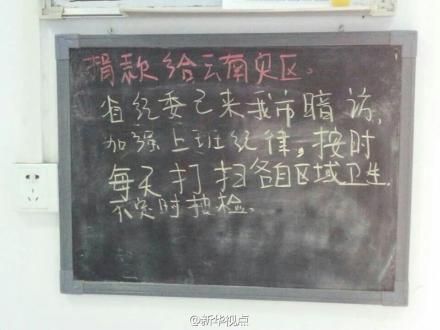 捐款给云南灾区。
省纪委已来我市暗访,
加强上班纪律,按时
每天打扫各自区域卫生.
不定时抽检。
@新华视点